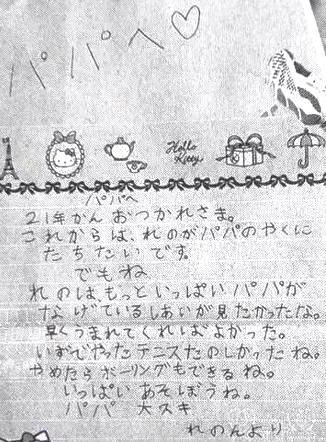 パパへ♡
Hello
Kitty
パパへ
21年かんおつかれさま。
これからは、れのがパパのやくに
たちたいです。
でもね
れのは、もっといっぱいパパが
なげているしあいが見たかったな。
早くうまれてくればよかった。
いずでやったテニスたのしかったね。
やめたらボーリングもできるね。
いっぱいあそぼうね。
パパ 大スキ
れのんより